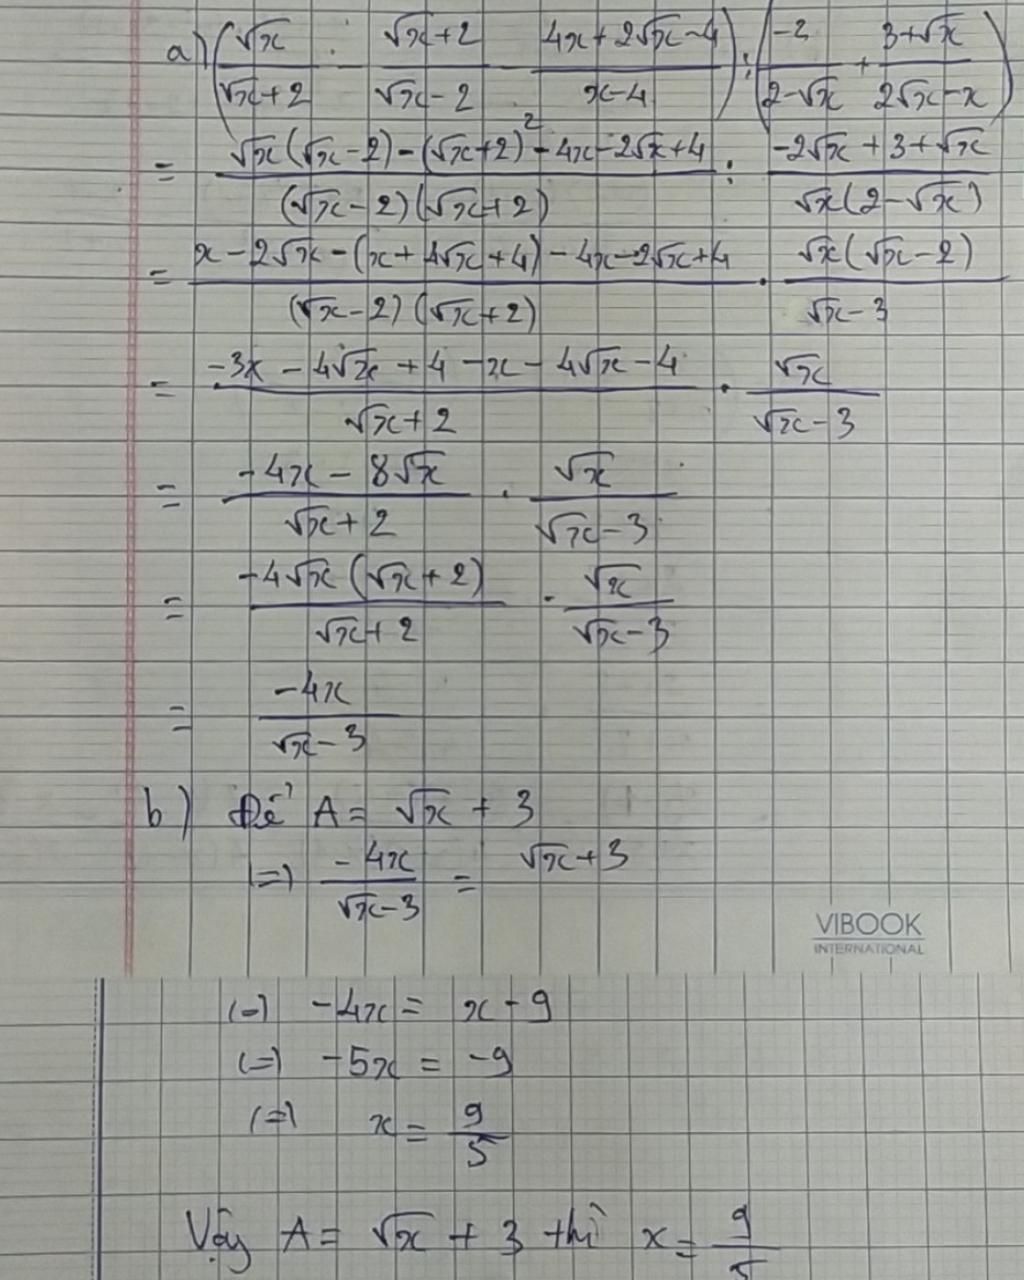 a) (√x/(√x+2) - (√x+2)/(√x-2) - (4x+2√x-4)/(x-4)) : (-2/(2-√x) + (3+√x)/(2√x-x))
= (√x(√x-2)-(√x+2)²-4x-2√x+4)/((√x-2)(√x+2)) : (-2√x+3+√x)/(√x(2-√x))
= (x-2√x-(x+4√x+4)-4x-2√x+4)/((√x-2)(√x+2)) . (√x(√x-2))/(√x-3)
= (-3x-4√x+4-x-4√x-4)/(√x+2) . √x/(√x-3)
= (-4x-8√x)/(√x+2) . √x/(√x-3)
= (-4√x(√x+2))/(√x+2) . √x/(√x-3)
= -4x/(√x-3)
b) Để A = √x + 3
(=) -4x/(√x-3) = √x+3
VIBOOK
INTERNATIONAL
(=) -4x = x-9
(=) -5x = -9
(=) x = 9/5
Vậy A = √x + 3 thì x = 9/5